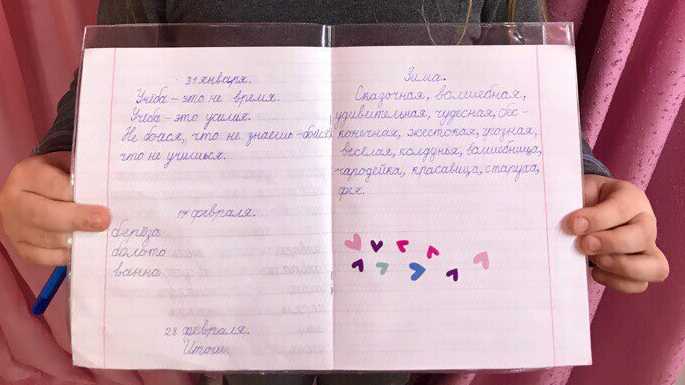 31 января.
Учёба – это не время.
Учёба – это усилия.
Не бойся, что не знаешь – бойся,
что не учишься.
17 февраля.
берёза
болото
ванна
28 февраля.
Зима.
Сказочная, волшебная,
удивительная, чудесная, бес-
конечная, жестокая, грозная,
весёлая, колдунья, волшебница,
чародейка, красавица, старуха,
фея.